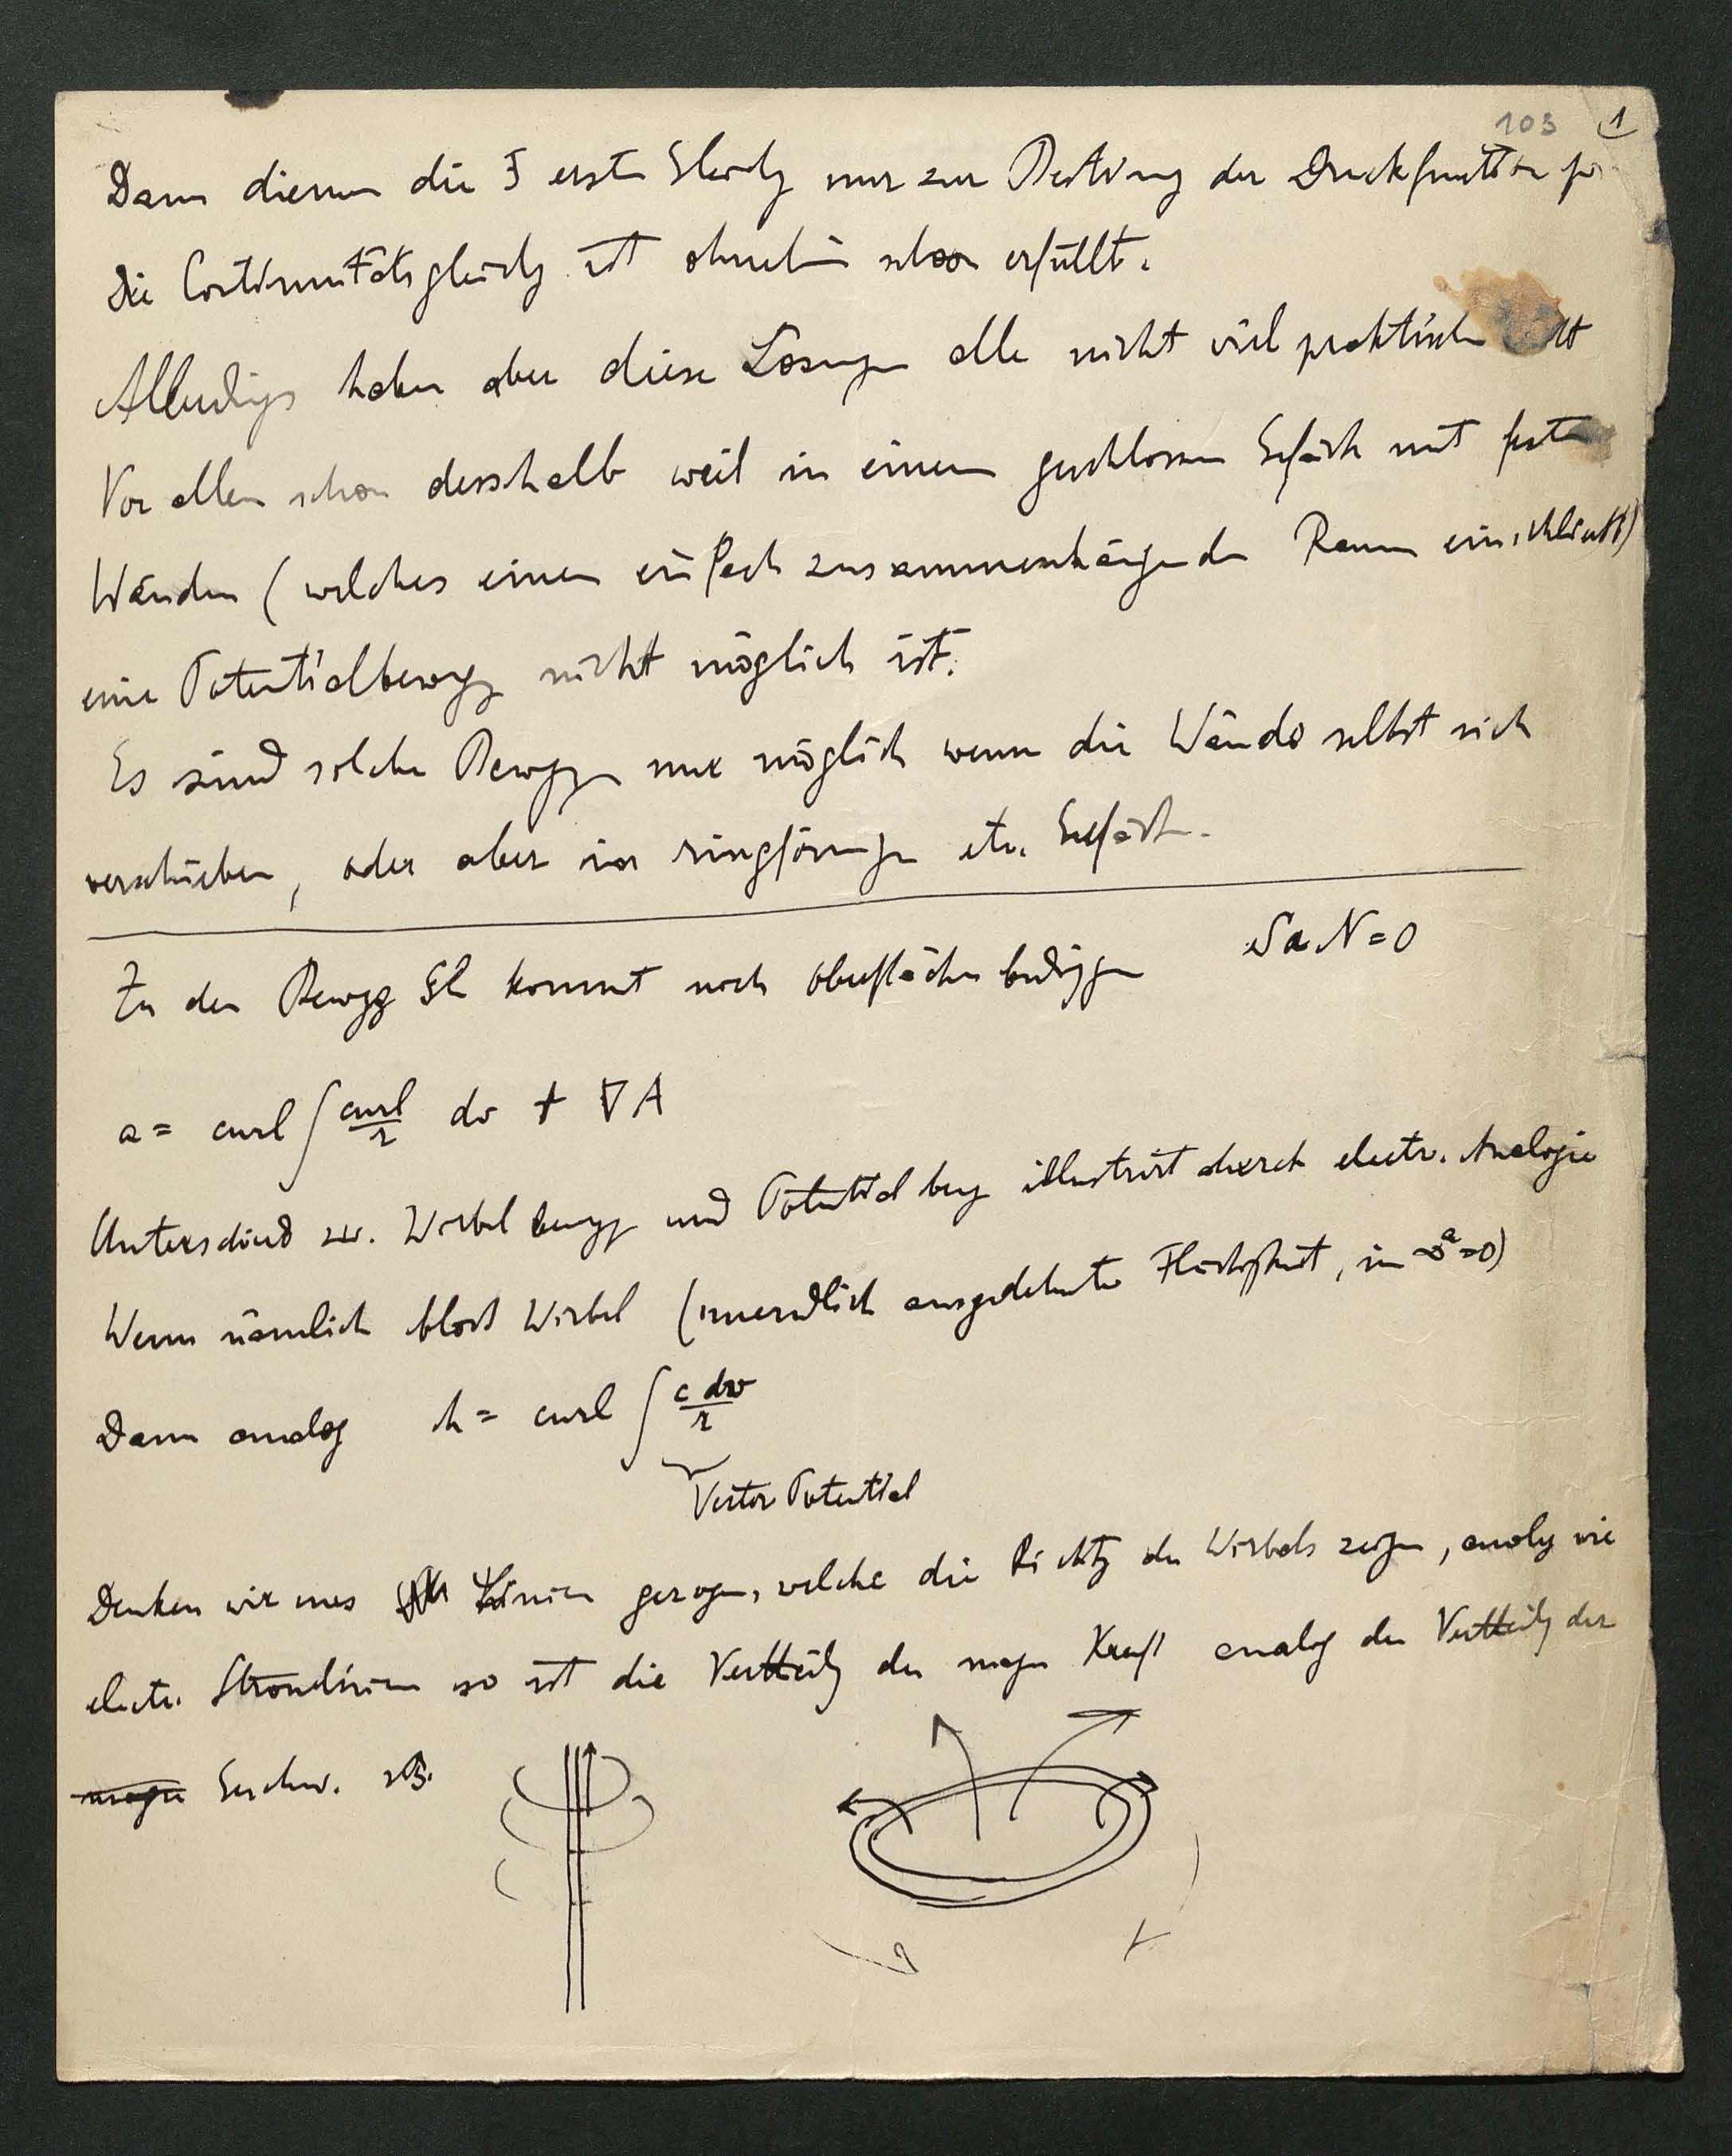 103 1
Dann dienen die 3 erste Gleichg nur zur Bestimng der Druckfunktion
Die Continuitätsgleichg ist ohnehin schon erfüllt.
Allerdings haben aber diese Lösungen alle nicht viel praktischen
Vor allem schon desshalb weil in einem geschlossenen Gefäss mit festen
Wänden (welches einen einfach zusammenhängenden Raum einschliesst)
eine Potentialbewegg nicht möglich ist.
Es sind solche Beweggen nur möglich wenn die Wände selbst sich
verschieben, oder aber in ringförmigen etc. Gefäss.
Zu den Bewgg Gl kommt noch Oberflächenbedinggen SaN=0
a = curl ∫ curl/r dv + ∇A
Unterschied zw. Wirbel bewgg und Potential beg illustrirt durch electr. Analogie
Wenn nämlich bloss Wirbel (unendlich ausgedehnte Flüssigkeit, in ∞ a=0)
Dann analog h = curl ∫ c dv/r
Vector Potential
Denken wir uns Linien gezogen, welche die Richtg des Wirbels zeigen, analog wie
electr. Stromlinien so ist die Vertheilg der magn Kraft analog der Vertheilg der
magn Geschw. zB.